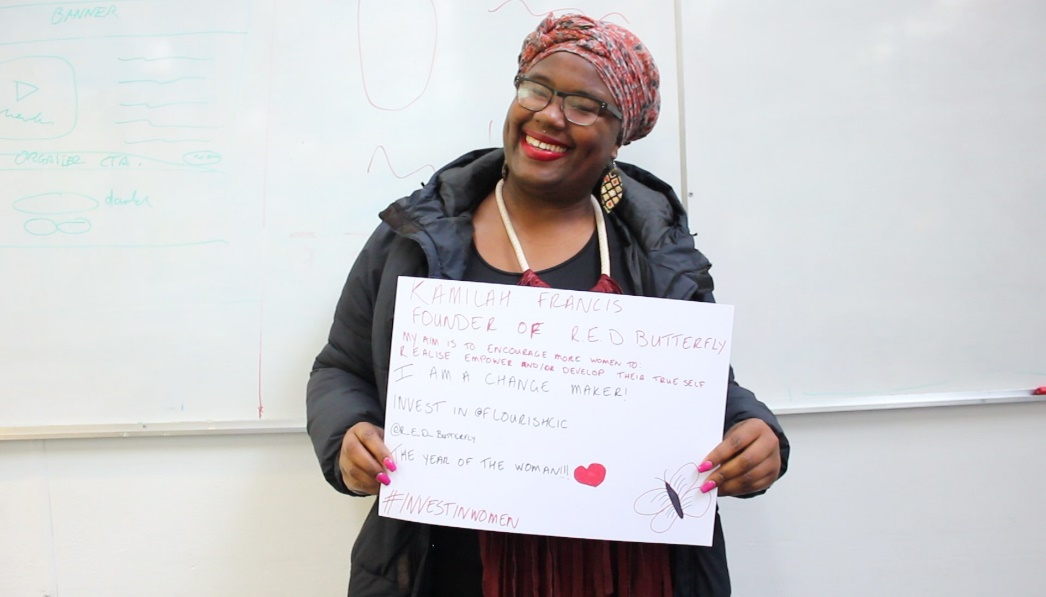 BANNER
ORGANISER CTA.
KAMILAH FRANCIS
FOUNDER OF R.E.D BUTTERFLY
MY AIM IS TO ENCOURAGE MORE WOMEN TO:
REALISE EMPOWER AND/OR DEVELOP THEIR TRUE SELF
I AM A CHANGE MAKER!
INVEST IN @FLOURISHCIC
@R.E.D_BUTTERFLY
THE YEAR OF THE WOMAN!!!
#INVESTINWOMEN